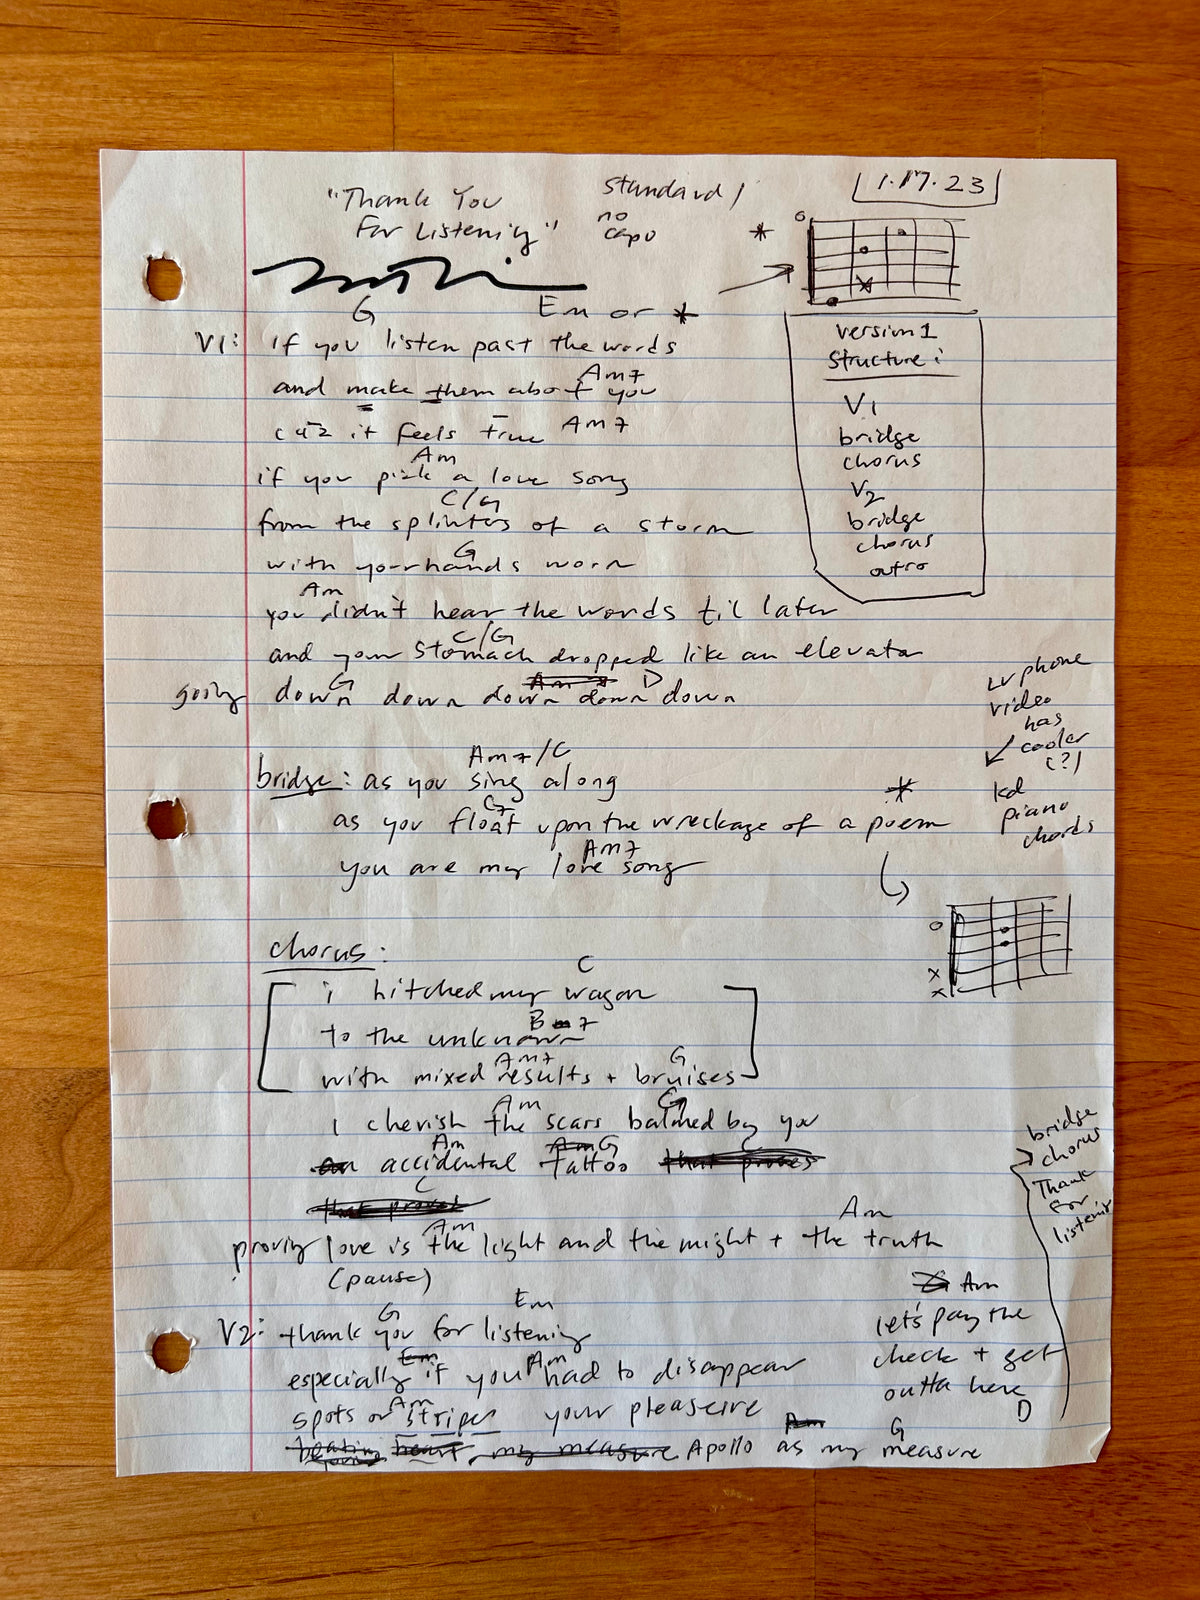 "Thank You
For Listening"
Standard /
no
capo
1.17.23
*
G Em or *
V1: if you listen past the words
Am7
and make them about you
cuz it feels true Am7
Am
if you pick a love song
C/G
from the splinters of a storm
G
with your hands worn
Am
you didn't hear the words til later
C/G
and your stomach dropped like an elevator
G Am7 D
going down down down down down
version 1
structure:
V1
bridge
chorus
V2
bridge
chorus
outro
phone
video
has
cooler
(?)
kd
piano
chords
Am7/C
bridge: as you sing along
G *
as you float upon the wreckage of a poem
Am7
you are my love song
chorus:
C
i hitched my wagon
Bm7
to the unknown
Am7 G
with mixed results + bruises
Am G
i cherish the scars balmed by you
Am Am G C
an accidental tattoo that proves
C
that proves
Am Am
proving love is the light and the might + the truth
(pause)
bridge
chorus
Thank
for
listening
G Em
V2: thank you for listening
Em Am
especially if you had to disappear
Am
spots or stripes your pleasure
Am G
beating heart, my measure Apollo as my measure
Am
let's pay the
check + get
outta here
D